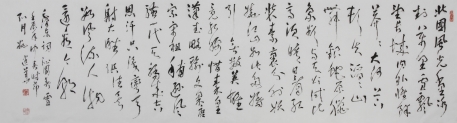 北国风光千里冰
封万里雪飘
望长城内外惟馀
莽莽大河上下
顿失滔滔山
舞银蛇原驰蜡
象欲与天公试比
高须晴日看红
装素裹分外妖
娆江山如此多娇
引无数英雄
竞折腰惜秦皇
汉武略输文采唐
宗宋祖稍逊风
骚一代天骄成吉
思汗只识弯弓
射大雕俱往矣
数风流人物
还看今朝
毛泽东词沁园春雪